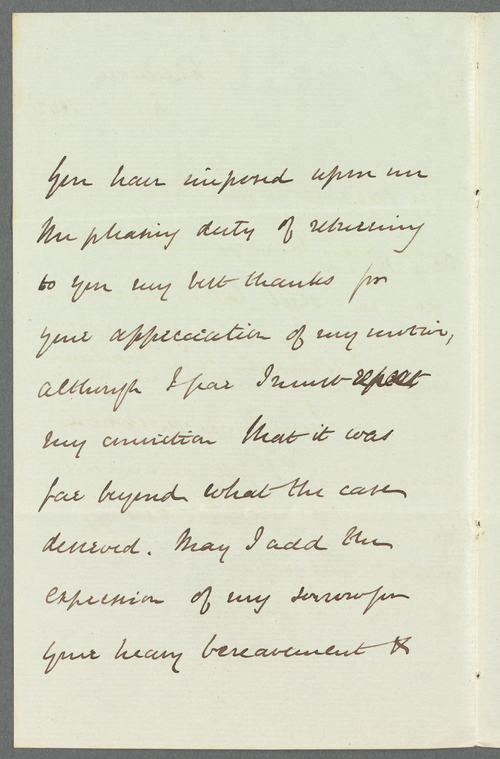 You have imposed upon me
the pleasing duty of returning
to you my best thanks for
your appreciation of my motive,
although I fear I must repeat
my conviction that it was
far beyond what the case
deserved. May I add the
expression of my sorrow for
your heavy bereavement &